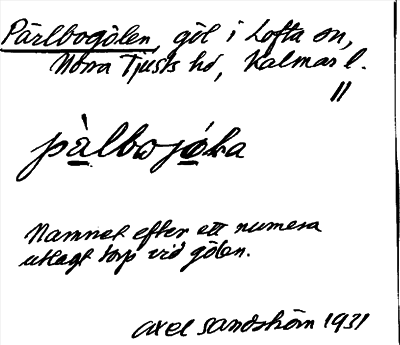 Pärlbogölen, göl i Lofta sn,
Norra Tjusts hd, Kalmar l.
||
pàlbojó̲ka
Namnet efter ett numera
utlagt torp vid gölen.
Axel Sandström 1931